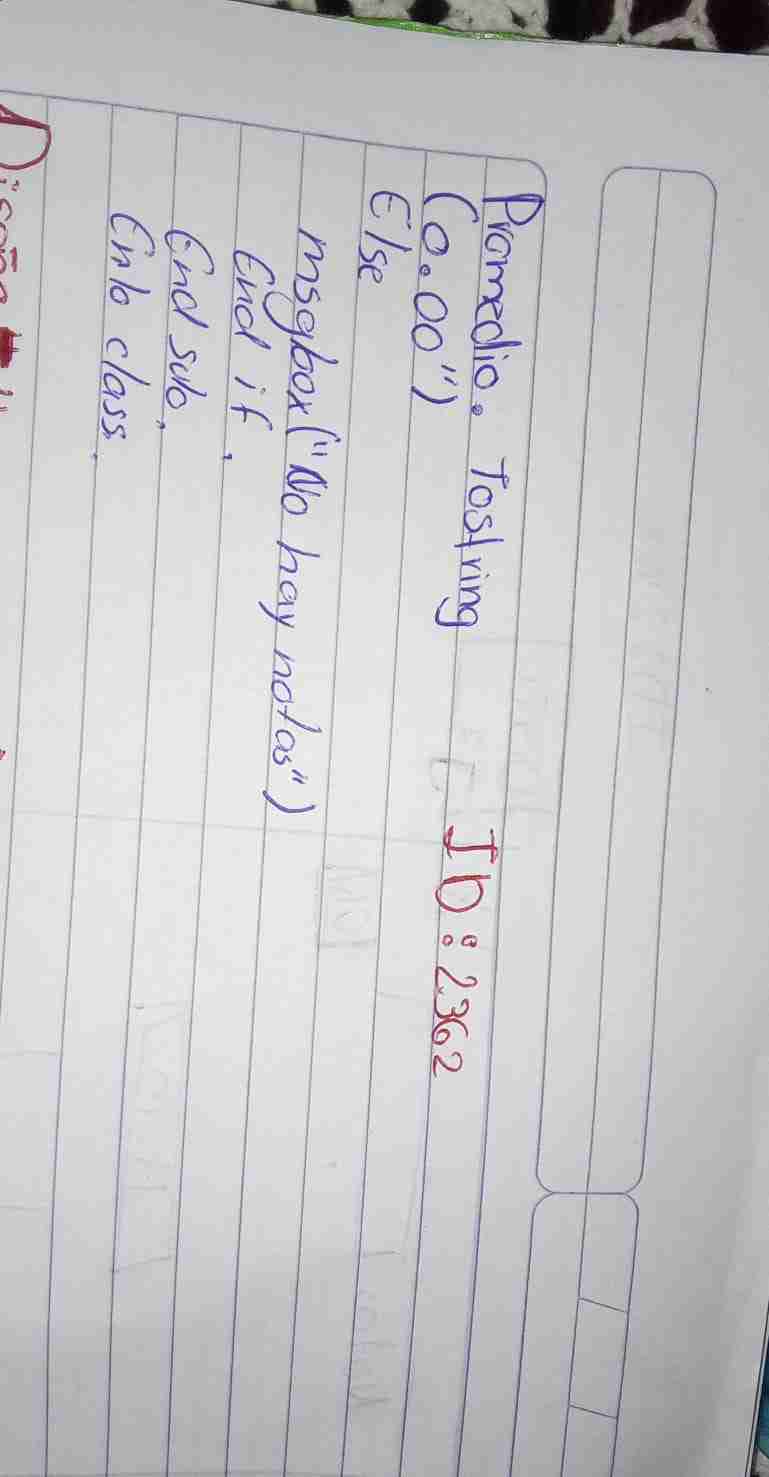 Promedio. Tostring
(0.00")
ID: 2362
Else
msgbox("No hay notas")
End if,
End sub,
Enlo class.